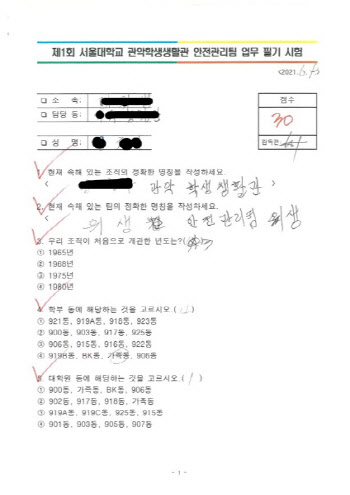 제1회 서울대학교 관악학생생활관 안전관리팀 업무 필기 시험
<2021.6.9>
□ 소 속:
□ 담당 동:
□ 성 명:
점수
30
감독관
1. 현재 속해 있는 조직의 정확한 명칭을 작성하세요.
< 관악 학생생활관 >
2. 현재 속해 있는 팀의 정확한 명칭을 작성하세요.
< 위생 안전관리팀 위생
3. 우리 조직이 처음으로 개관한 년도는?( )
① 1965년
② 1968년
③ 1975년
④ 1980년
4. 학부 동에 해당하는 것을 고르시오.( )
① 921동, 919A동, 918동, 923동
② 900동, 903동, 917동, 925동
③ 906동, 915동, 916동, 922동
④ 919B동, BK동, 가족동, 906동
5. 대학원 동에 해당하는 것을 고르시오.( 1 )
① 900동, 가족동, BK동, 906동
② 902동, 917동, 918동, 가족동
③ 919A동, 919C동, 925동, 915동
④ 901동, 903동, 905동, 907동
- 1 -